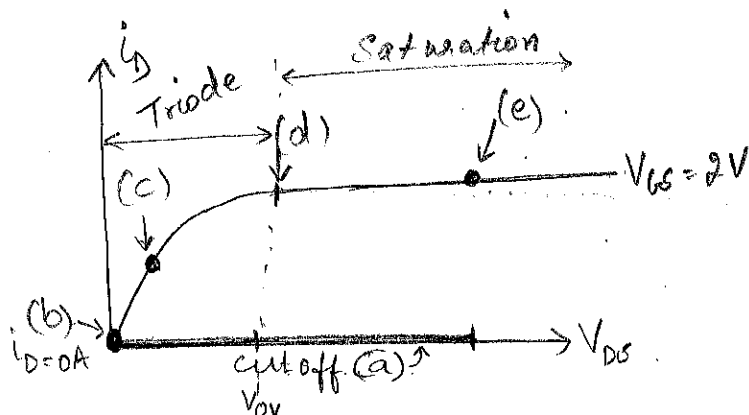 Saturation
i_D
Triode
(d)
(e)
(c)
V_GS = 2V
(b)
i_D=0A
cutoff (a)
V_DS
V_OV